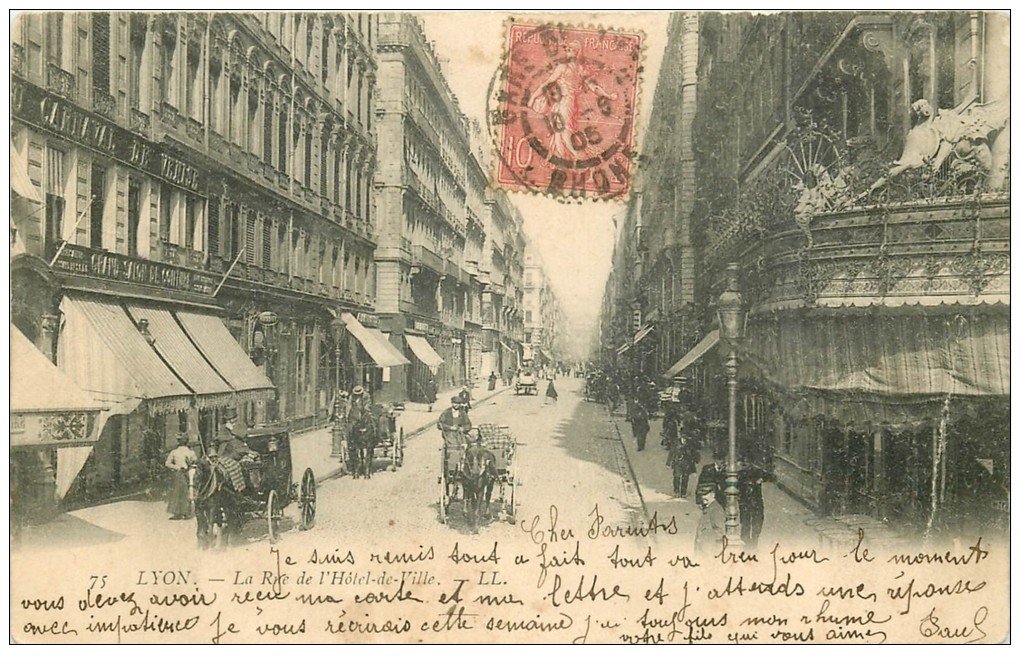 REPUBLIQUE FRANÇAISE
10
RHONE
GRAND BAZAR DE
Cher Parnits
Je suis remis tout a fait tout va bien pour le moment
75 LYON. — La Rue de l'Hôtel-de-Ville. — LL.
vous devez avoir reçu ma carte et ma lettre et j'attends une réponse
avec impatience je vous récrirais cette semaine j'ai toujours mon rhume
votre fils qui vous aime Paul